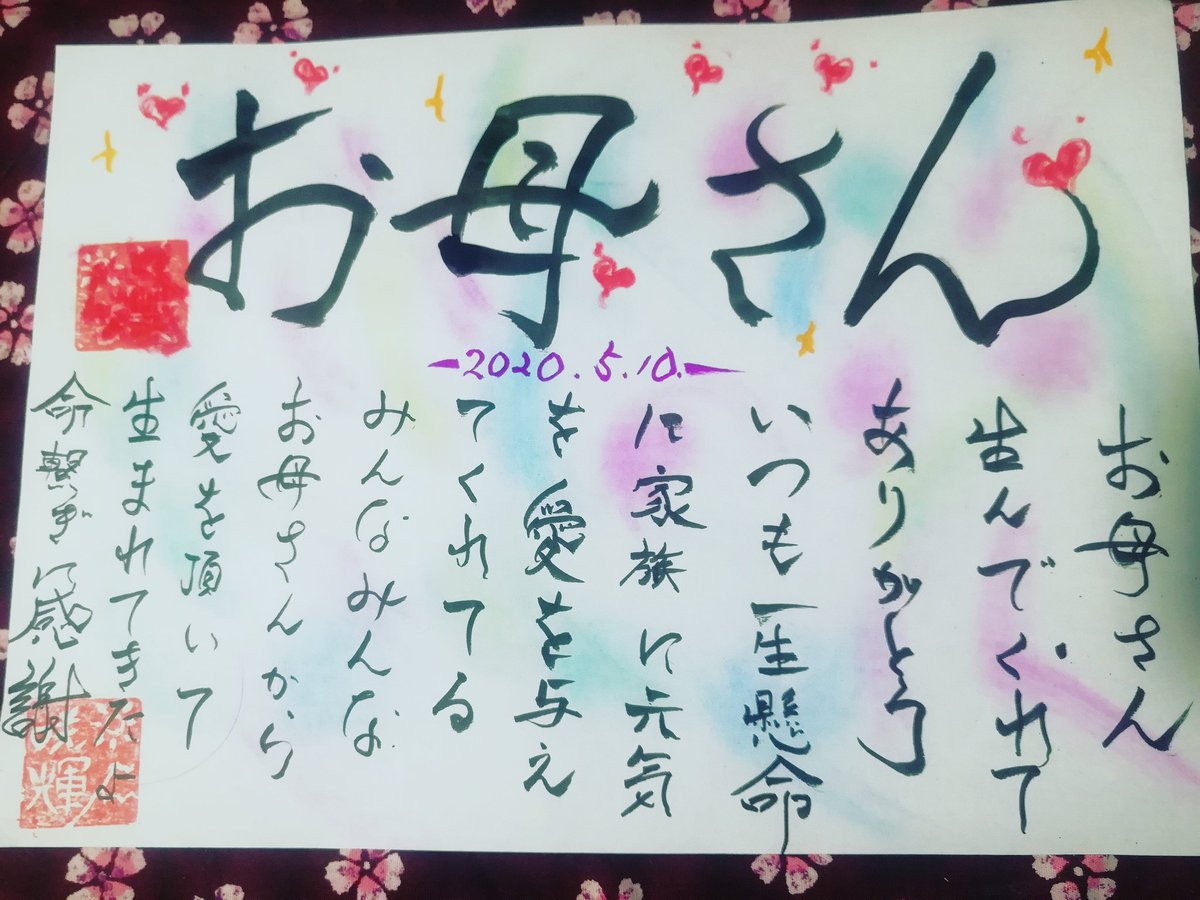 お母さん
2020.5.10.
お母さん
生んでくれて
ありがとう
いつも一生懸命
に家族に元気
を愛を与え
てくれてる
みんなみんな
お母さんから
愛を頂いて
生まれてきたよ
命繋ぎに感謝
輝